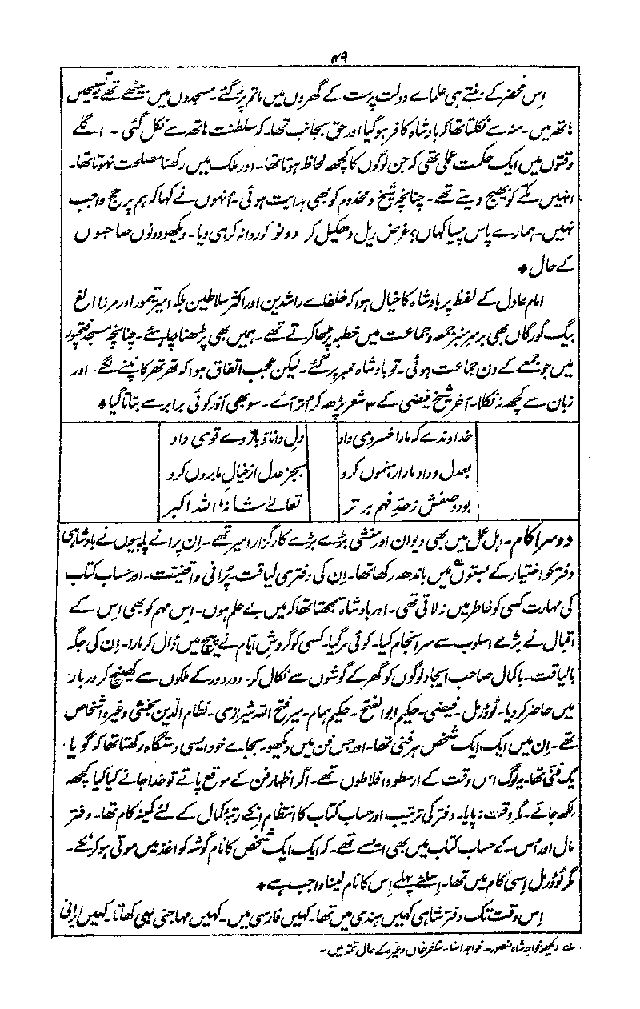 ۴۹
اس محضر کے بنتے ہی علمائے دولت پرست کے گھروں میں ماتم پڑ گئے۔ مسجدوں میں بیٹھے تھے تسبیحیں
ہاتھ میں۔ منہ سے نکلتا تھا کہ بادشاہ کافر ہو گیا اور حق بجانب تھا۔ کہ سلطنت ہاتھ سے نکل گئی۔ اگلے
وقتوں میں ایک حکمت عملی تھی کہ جن لوگوں کا کچھ لحاظ ہوتا تھا۔ اور ملک میں رکھنا مصلحت نہ ہوتا تھا۔
انہیں مکے کو بھیج دیتے تھے۔ چنانچہ شیخ و مخدوم کو بھی ہدایت ہوئی۔ انہوں نے کہا کہ ہم پر حج واجب
نہیں۔ ہمارے پاس پیسا کہاں؟ غرض ریل دھکیل کر دونو کو روانہ کر ہی دیا۔ دیکھو دونوں صاحبوں
کے حال *
امام عادل کے لفظ پر بادشاہ کا خیال ہوا کہ خلفائے راشدین اور اکثر سلاطین بلکہ امیر تیمور اور مرزا الغ
بیگ گورگاں بھی برسر منبر جمعہ و جماعت میں خطبہ پڑھا کرتے تھے۔ ہمیں بھی پڑھنا چاہئے۔ چنانچہ مسجد فتحپور
میں جو جمعے کے دن جماعت ہوئی۔ تو بادشاہ ممبر پر گئے۔ لیکن عجب اتفاق ہوا کہ تھر تھر کانپنے لگے۔ اور
زبان سے کچھ نہ نکلا۔ آخر شیخ فیضی کے ۳ شعر پڑھ کر اتر آئے۔ سو بھی اَور کوئی برابر سے بتاتا گیا *
خداوندے کہ مارا خسروی داد دلِ دانا و بازوے قوی داد
بعدل و داد مارا رہنموں کرد بجز عدل از خیالِ ما بروں کرد
بود وصفش زحدِ فہم برتر تعالیٰ شانہٗ اللہ اکبر
دوسرا کام۔ اہل عمل میں بھی دیوان اور منشی بڑے بڑے کارگزار امیر تھے۔ ان پرانے پاپیوں نے بادشاہی
دفتر کو اختیار کے بستوں میں باندھ رکھا تھا۔ ان کی دفتری لیاقت۔ پرانی واقفیت۔ اور حساب کتاب
کی مہارت کسی کو خاطر میں نہ لاتی تھی۔ اور بادشاہ سمجھتا تھا کہ میں بے علم ہوں۔ اس مہم کو بھی اس کے
اقبال نے بڑے اسلوب سے سرانجام کیا۔ کوئی مر گیا۔ کسی کو گردش ایام نے پیچ میں ڈال کر مارا۔ ان کی جگہ
بالیاقت۔ باکمال صاحب ایجاد لوگوں کو گھر کے گوشوں سے نکال کر۔ دور دور کے ملکوں سے کھینچ کر دربار
میں حاضر کر دیا۔ ٹوڈرمل۔ فیضی۔ حکیم ابوالفتح۔ حکیم ہمام۔ میر فتح اللہ شیرازی۔ نظام الدین بخشی وغیرہ اشخاص
تھے۔ ان میں ایک ایک شخص ہر فنی تھا۔ اور جس فن میں دیکھو۔ بجائے خود ایسی دستگاہ رکھتا تھا کہ گویا
یک فنی تھا۔ یہ لوگ اس وقت کے ارسطو و افلاطوں تھے۔ اگر اظہار فن کے موقع پاتے تو خدا جانے کیا کیا کچھ
لکھ جاتے۔ مگر وقت نہ پایا۔ دفتر کی ترتیب اور حساب کتاب کا انتظام انکے رتبۂ کمال کے لئے کمینہ کام تھا۔ دفتر
مال اور اس کے حساب کتاب میں بھی ایسے تھے۔ کہ ایک ایک شخص کا نام گوشہ کاغذ میں موتی ہو کر ٹنکے۔
مگر ٹوڈرمل اسی کام میں تھا۔ اسلئے پہلے اس کا نام لینا واجب ہے *
اس وقت تک دفتر شاہی کہیں ہندی میں تھا۔ کہیں فارسی میں۔ کہیں مہاجنی بہی کھاتا۔ کہیں ایرانی
؎ دیکھو خواجہ شاہ منصور۔ خواجہ امینا۔ مظفر خاں وغیرہ کے حال تتمہ میں۔